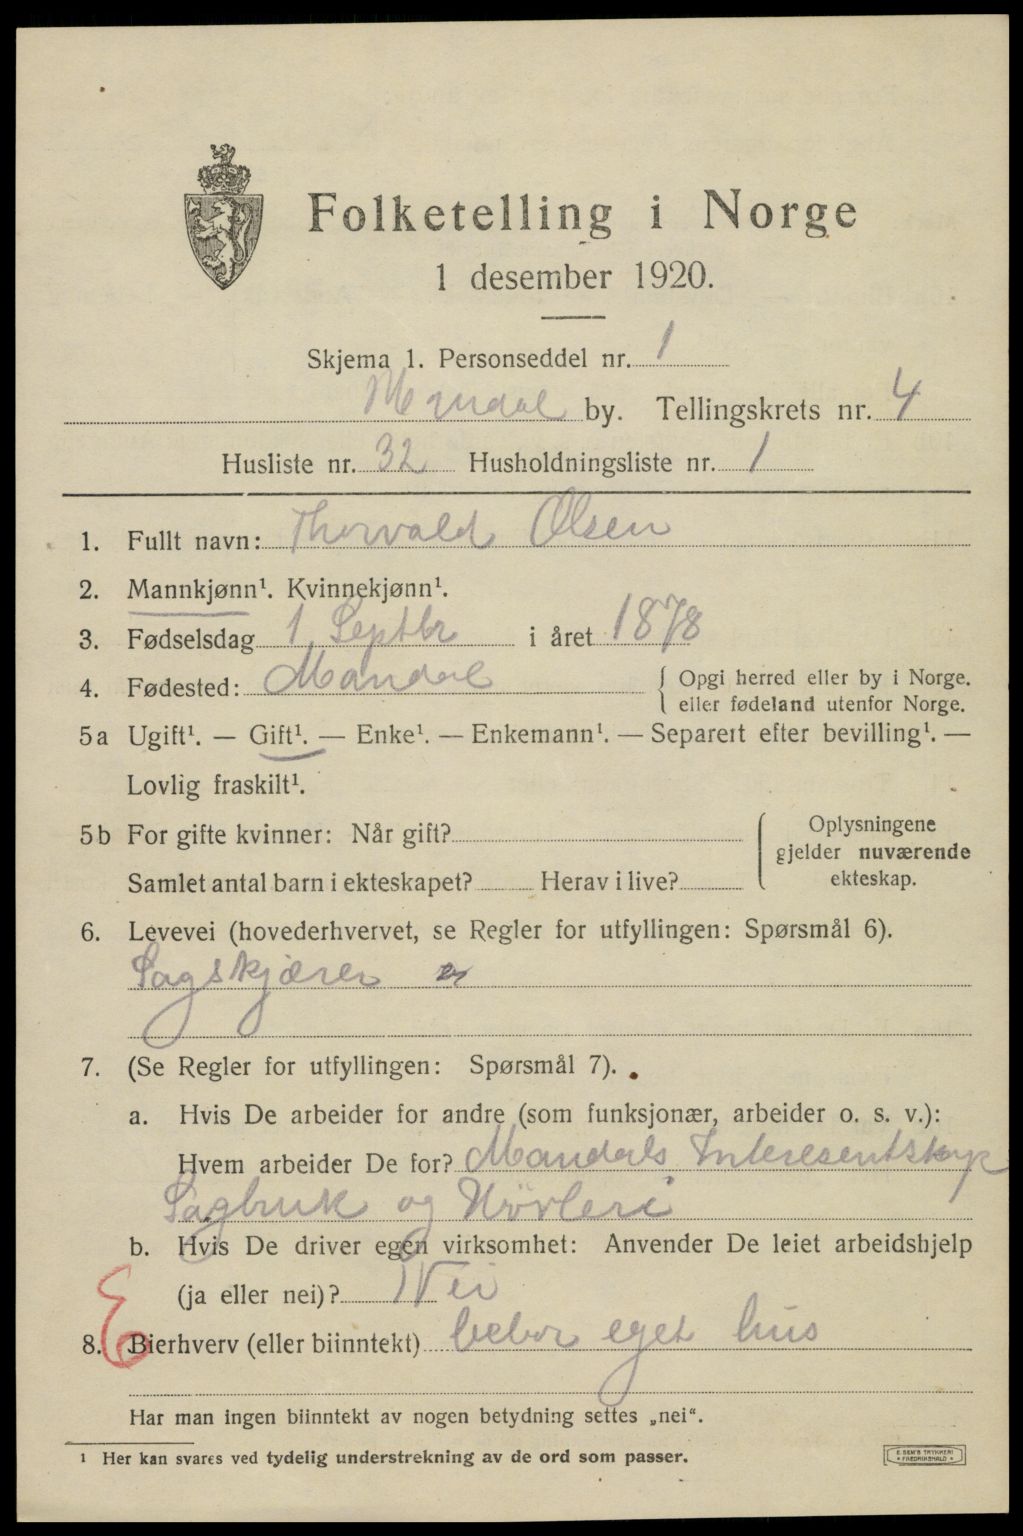 Folketelling i Norge
1 desember 1920.
Skjema 1. Personseddel nr. 1
Mandal by. Tellingskrets nr. 4
Husliste nr. 32 Husholdningsliste nr. 1
1. Fullt navn: Thorvald Olsen
2. Mannkjønn¹. Kvinnekjønn¹.
3. Fødselsdag 1 Septbr i året 1878
4. Fødested: Mandal { Opgi herred eller by i Norge.
eller fødeland utenfor Norge.
5a Ugift¹. — Gift¹. — Enke¹. — Enkemann¹. — Separert efter bevilling¹. —
Lovlig fraskilt¹.
5b For gifte kvinner: Når gift?
Samlet antal barn i ekteskapet? Herav i live?
Oplysningene
gjelder nuværende
ekteskap.
6. Levevei (hovederhvervet, se Regler for utfyllingen: Spørsmål 6).
Sagskjærer
7. (Se Regler for utfyllingen: Spørsmål 7).
a. Hvis De arbeider for andre (som funksjonær, arbeider o. s. v.):
Hvem arbeider De for? Mandals Interesentskap
Sagbruk og Høvleri
b. Hvis De driver egen virksomhet: Anvender De leiet arbeidshjelp
(ja eller nei)? Nei
8. Bierhverv (eller biinntekt) bebor eget hus
E
Har man ingen biinntekt av nogen betydning settes „nei“.
¹ Her kan svares ved tydelig understrekning av de ord som passer.
E. SEM'S TRYKKERI
• FREDRIKSHALD •